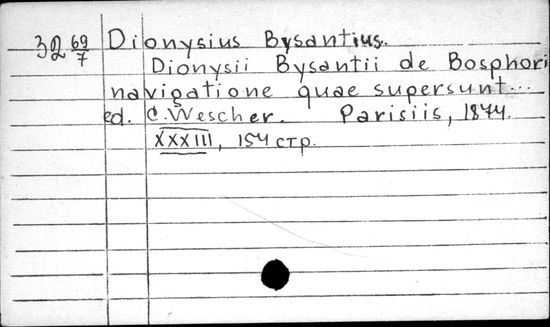 32 69/7 Dionysius Bysantius.
Dionysii Bysantii de Bosphori
navigatione quae supersunt...
ed. C. Wescher. Parisiis, 1874.
XXXIII, 154 стр.